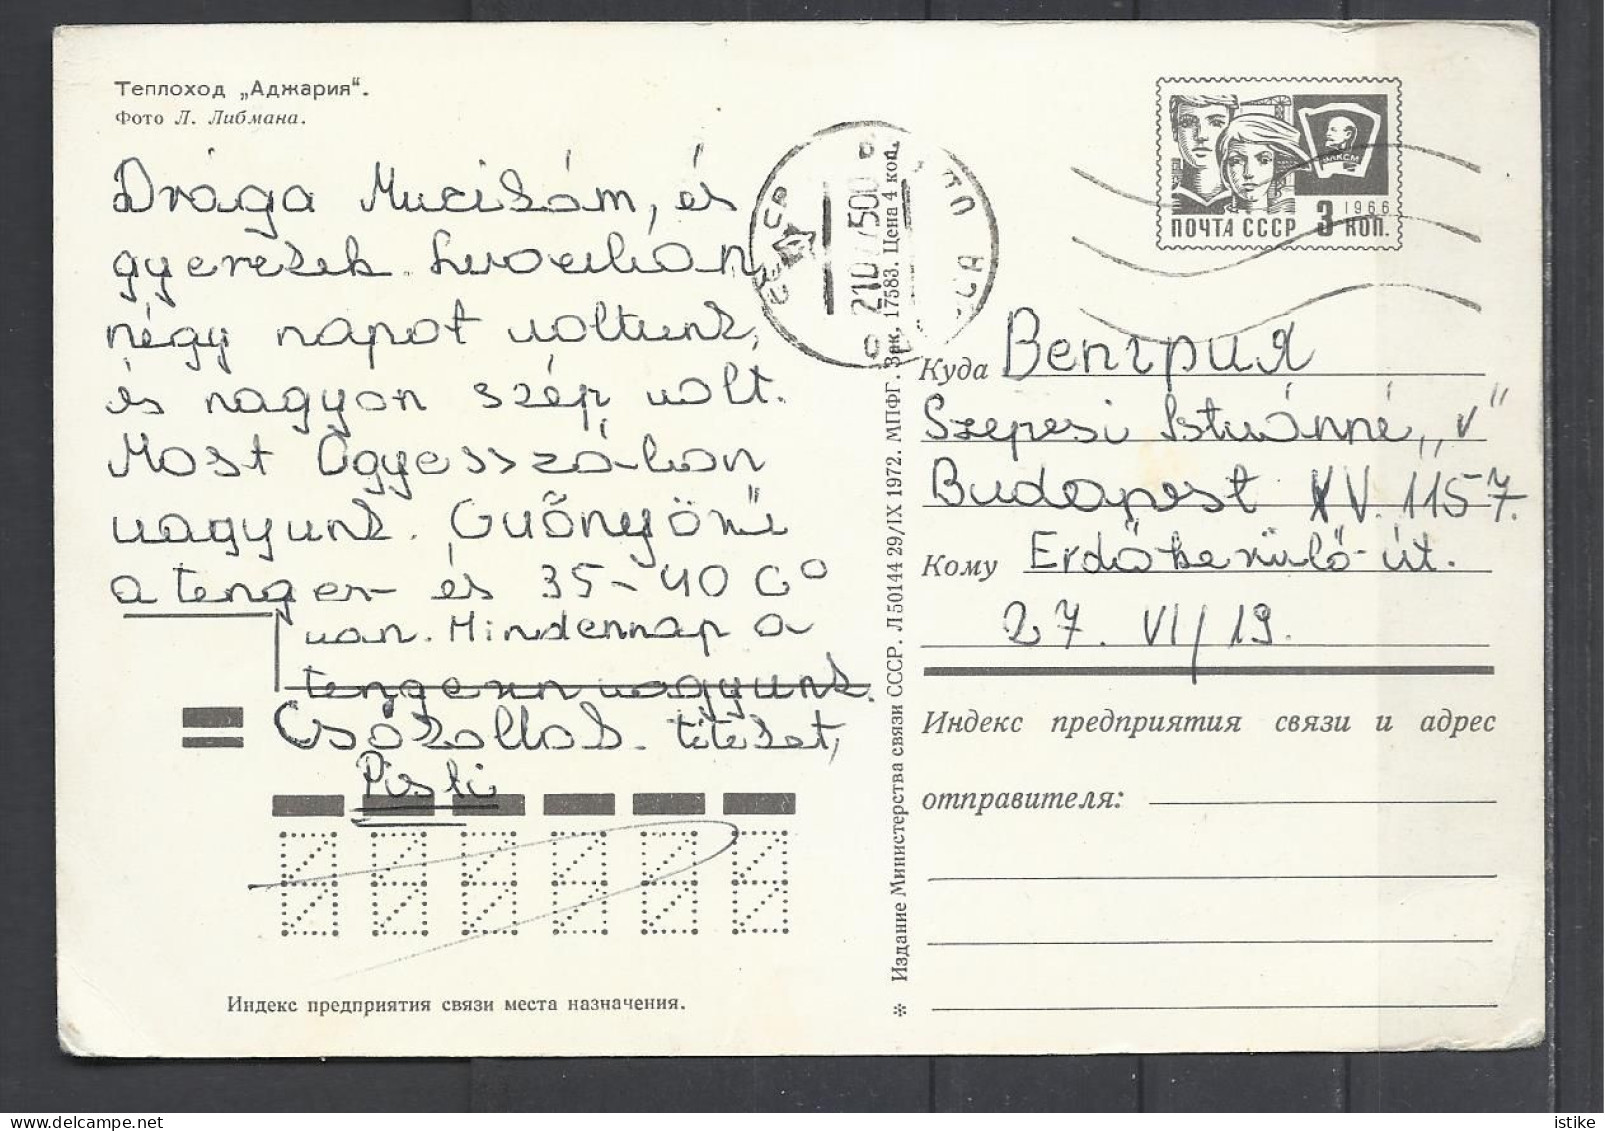 Теплоход „Аджария“.
Фото Л. Либмана.
Drága Mucikám, és
gyerekek. Lvovban
négy napot voltunk,
és nagyon szép volt.
Most Ogyesszában
vagyunk. Gyönyörű
a tenger és 35-40 C°
van. Mindennap a
tengeren vagyunk.
Csókollak titeket,
Pisti
Индекс предприятия связи места назначения.
✻ Издание Министерства связи СССР. Л 50144 29/IX 1972. МПФГ. Зак. 17583. Цена 4 коп.
СССР
ПОЧТА СССР 3 КОП.
1966
ВЛКСМ
Куда Венгрия
Szepesi Istvánné „V"
Budapest XV. 1157.
Кому Erdőkerülő-út.
27. VI/19.
Индекс предприятия связи и адрес
отправителя:
istike